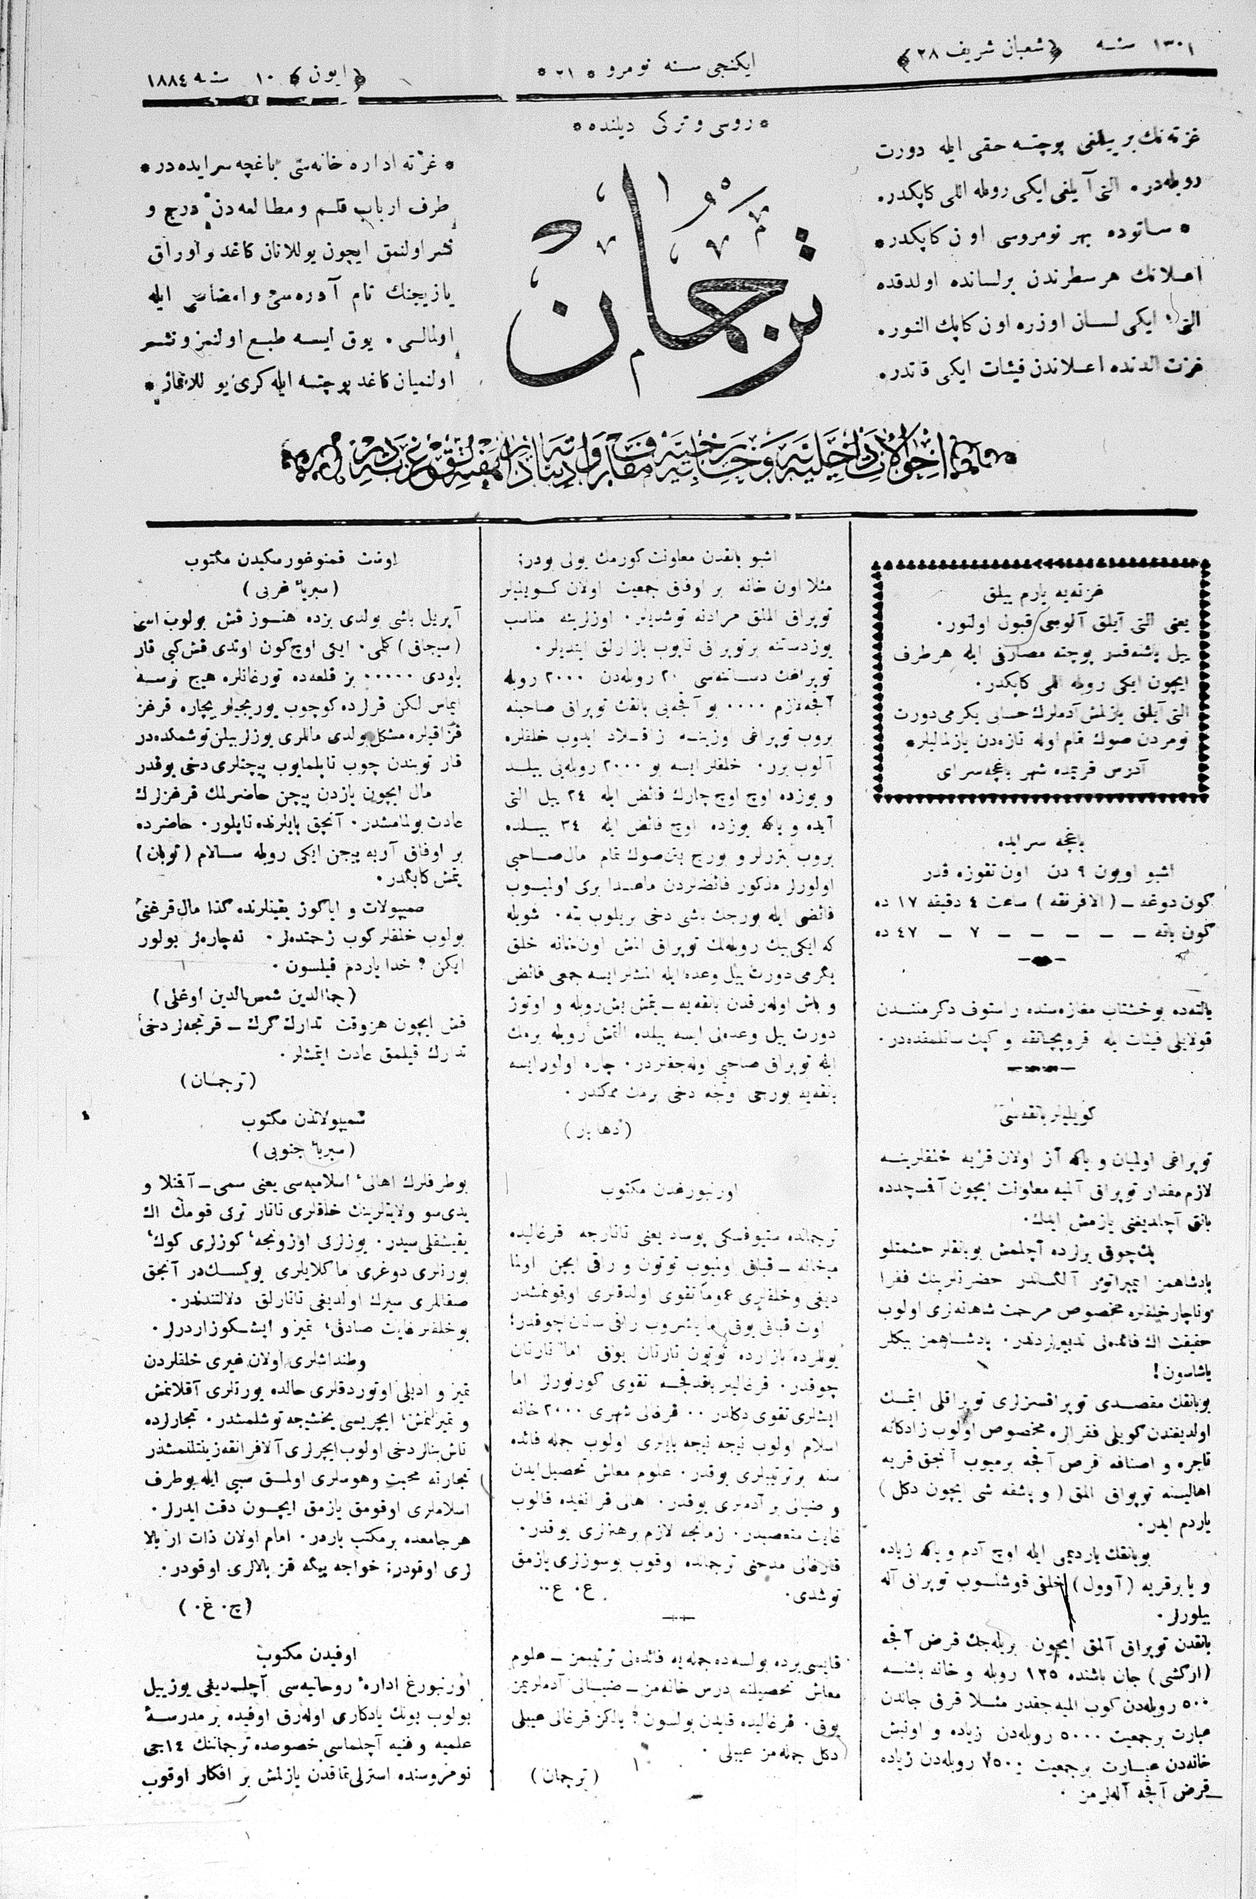 ١٣٠١ سنه ﴿شعبان شريف ٢٨﴾
ايكنجى سنه نومرو * ٢١ *
﴿ايون﴾ ١٠ سنه ١٨٨٤
* روسى و تركى ديلنده *
ترجمان
غزته نك بر ييللغى پوچته حقى ايله دورت
روبله در. التى آيلغى ايكى روبله اللى كاپكدر.
* ساتوده بهر نومروسى اون كاپكدر *
اعلانك هر سطرندن برلسانده اولدقده
التى، ايكى لسان اوزره اون كاپك النور.
غزت الدنده اعلاندن فيئات ايكى قاتدر.
* غزته اداره خانه سى باغچه سرايده در *
طرف ارباب قلم و مطالعه دن درج و
نشر اولنمق ايچون يوللانان كاغد و اوراق
يازيجنك نام آدره سى و امضاسى ايله
اولمالى. يوق ايسه طبع اولنمز و نشر
اولنميان كاغد پوچته ايله كرى يوللانماز *
غزته يه يارم ييللق
يعنى التى آيلق آلوچى قبول اولنور.
ييل باشنه قدر پوچته مصارفى ايله هر طرف
ايچون ايكى روبله اللى كاپكدر.
التى آيلق يازلمش آدملرك حسابى يكرمى دورت
نومردن صوك تمام اوله تازه دن يازلمالیلر *
آدرس قريمده شهر باغچه سراى
باغچه سرايده
اشبو ايون ٩ دن اون تقوزه قدر
كون دوغه ــ (الافرنقه) ساعت ٤ دقيقه ١٧ ده
كون باته ــ ــ ــ ــ ٧ ــ ٤٧ ده
يالته ده بوخشتاب مغازه سنده راستوف دكرمنندن
قولايلى فيئات ايله قروپچاتقه و كپك ساتلمقده در.
كويليلر بانقه سى
توپراغى اولميان و ياكه آز اولان قريه خلقلرينه
لازم مقدار توپراق آلمه معاونت ايچون آقمسچدده
بانق آچلديغنى يازمش ايدك.
پك چوق يرلرده آچلمش بو بانقلر حشمتلو
پادشاهمز ايمپراتور آلكساندر حضرتلرينك فقرا
وناچار خلقلره مخصوص مرحمت شاهانه لرى اولوب
حقيقت اك فائده لى تدبيرلردندر. پادشاهمز بيكلر
ياشاسون!
بو بانقك مقصدى توپراقسزلرى توپراقلى ايتمك
اولديغندن كويلى فقرالره مخصوص اولوب زادكانه
تاجره و اصنافه قرض آقچه برميوب آنجق قريه
اهاليسنه توپراق المق (و باشقه شى ايچون دكل)
ياردم ايدر.
بو بانقك ياردمى ايله اوچ آدم و ياكه زياده
و يا بر قريه (آوول) خلقى قوشلوب توپراق آله
بيلورلر.
بانقدن توپراق آلمق ايچون بريله جك قرض آقچه
(ارگشى) جان باشنده ١٢٥ روبله و خانه باشنه
٥٠٠ روبله دن كوب الميه جقدر مثلا قرق جاندن
عبارت برجمعيت ٥٠٠٠ روبله دن زياده و اونبش
خانه دن عبارت برجمعيت ٧٥٠٠ روبله دن زياده
قرض آقچه آله لرمز.
اشبو بانقدن معاونت كورمك يولى بودر؛
مثلا اون خانه بر اوفاق جمعيت اولان كويليلر
توپراق المق مرادنه توشديلر. اوزلرينه مناسب
يوز دساتنه بر توپراق تابوب بازارلق ايتديلر.
توپراغك دساتنه سى ٢٠ روبله دن ٢٠٠٠ روبله
آقچه لازم .... بو آقچه نى بانقك توپراق صاحبنه
بروب توپراغى اوزينه زاقلاد ايدوب خلقلره
آلوب برر. خلقلر ايسه بو ٢٠٠٠ روبله نى ييلده
و يوزده اوچ اوچ چارك فائض ايله ٢٤ ييل التى
آيده و ياكه يوزده اوچ فائض ايله ٣٤ ييلده
بروب بتررلر و بورج بتن صوك تمام مال صاحبى
اولورلر مذكور فائضلردن ماعدا برى اولميوب
فائضى ايله بورجك باشى دخى بريلوب بته. شويله
كه ايكى بيك روبله لك توپراق المش اون خانه خلق
يكرمى دورت ييل وعده ايله المشلر ايسه جمعى فائض
و باش اوله رق بانقه يه ــ يتمش بش روبله و اوتوز
دورت ييل وعده لى ايسه ييلده التمش روبله برمك
ايله توپراق صاحبى اوله جقلردر. چاره اولور ايسه
بانقه يه بورجى اوچه دخى برمك ممكندر.
(دها بار)
اورنبورغدن مكتوب
ترجمانده ستپوفسكى پوساد يعنى تاتارچه قرغاليده
ميخانه ــ قباق اولميوب توتون و راقى ايچن اولما
ديغى و خلقلرى عموما تقوى اولدقلرى اوقونمشدر
اوت قباق يوق اما يشروب راقى ساتان چوقدر؛
يوللرده بازارده توتون تارتان يوق اما تارتان
چوقدر. قرغاليلر بقدقچه تقوى كورنورلر اما
ايشلرى تقوى دكلدر .. قرغالى شهرى ٢٠٠٠ خانه
اسلام اولوب نيچه نيچه بايلرى اولوب جمله فائده
سنه بر ترتيبلرى يوقدر. علوم معاش تحصيل ايدن
و ضيالى بر آدملرى يوقدر. اهالى قرانغيده قالوب
غايت متعصبدر. زمانجه لازم بر هنرلرى يوقدر.
قارغالى مدحنى ترجمانده اوقوب بو سوزلرى يازمق
توشدى. ع. ع..
قايسى يرده بولسه ده جمله يه فائده لى ترتيبمز ــ علوم
معاش تحصيلنه درس خانه مز ــ ضيالى آدملريمز
يوق. قرغاليده قايدن بولسون؟ يالكز قرغالى عيبلى
دكل جمله مز عيبلى.
(ترجمان)
(سبريا غربى)
آپريل باشى بولدى بزده هنوز قش بولوب اسى
(سيجاق) كلمى. ايكى اوچ كون اوتدى قش كبى قار
ياودى ..... بز قلعه ده تورغانلره هيچ نرسه
ايماس لكن قرلرده كوچوب يورمجيلر بيچاره قرغز
قزاقلره مشكل بولدى ماللرى يوزلر بيلن توشمكده در
قار توبندن چوب تابلمايوب پيچنلرى دخى يوقدر
مال ايچون يازدن پيچن حاضرلمك قرغزلرك
عادت بولمامشدر. آنجق بايلرنده تاپلور. حاضرده
بر اوفاق آربه پيچن ايكى روبله سالام (توبان)
يتمش كاپكدر.
سمپولات و اياگوز يقينلرنده كذا مال قرغنى
بولوب خلقلر كوب زحمتده لر. نه چاره لر بولور
ايكن؟ خدا ياردم قيلسون.
(جماالدين شمس الدين اوغلى)
قش ايچون هر وقت تدارك كرك ــ قرنجه لر دخى
تدارك قيلمق عادت ايتمشلر.
(ترجمان)
سميپولاتدن مكتوب
(سبريا جنوبى)
بو طرفلرك اهالئ اسلاميه سى يعنى سمى ــ آقتلا و
يدى سو ولايتلرينك خلقلرى تاتار ترى قومك اك
يقيشقلى سيدر. يوزلرى اوزونجه، كوزلرى كوك،
بورنلرى دوغرى ماكلايلرى يوكسكدر آنجق
صقاللرى سيرك اولديغى تاتارلق دلالتندندر.
بو خلقلر غايت صادق، تميز و ايشكوزاردرلر.
وطنداشلرى اولان غيرى خلقلردن
تميز و ادبلى اوتوردقلرى حالده يورتلرى آقلانمش
و تميزلنمش، ايچريسى يخشيجه توشلمشدر. تجارلرده
تاش بنالر دخى اولوب ايچرلرى آلافرانقه زينتلنمشدر
تجارته محبت و هوسلرى اولمق سببى ايله بو طرف
اسلاملرى اوقومق يازمق ايچون دقت ايدرلر.
هر جامعده بر مكتب باردر. امام اولان ذات ار بالا
لرى اوقودر؛ خواجه بيكه قز بالالرى اوقودر.
(چ. غ.)
اوفيدن مكتوب
اورنبورغ ادارهٔ روحانيه سى آچلديغى يوز ييل
بولوب بونك يادكارى اوله رق اوفيده بر مدرسهٔ
علميه و فنيه آچلماسى خصوصده ترجماننك ١٤ جى
نومروسنده استرلى تماقدن يازلمش بر افكار اوقوب